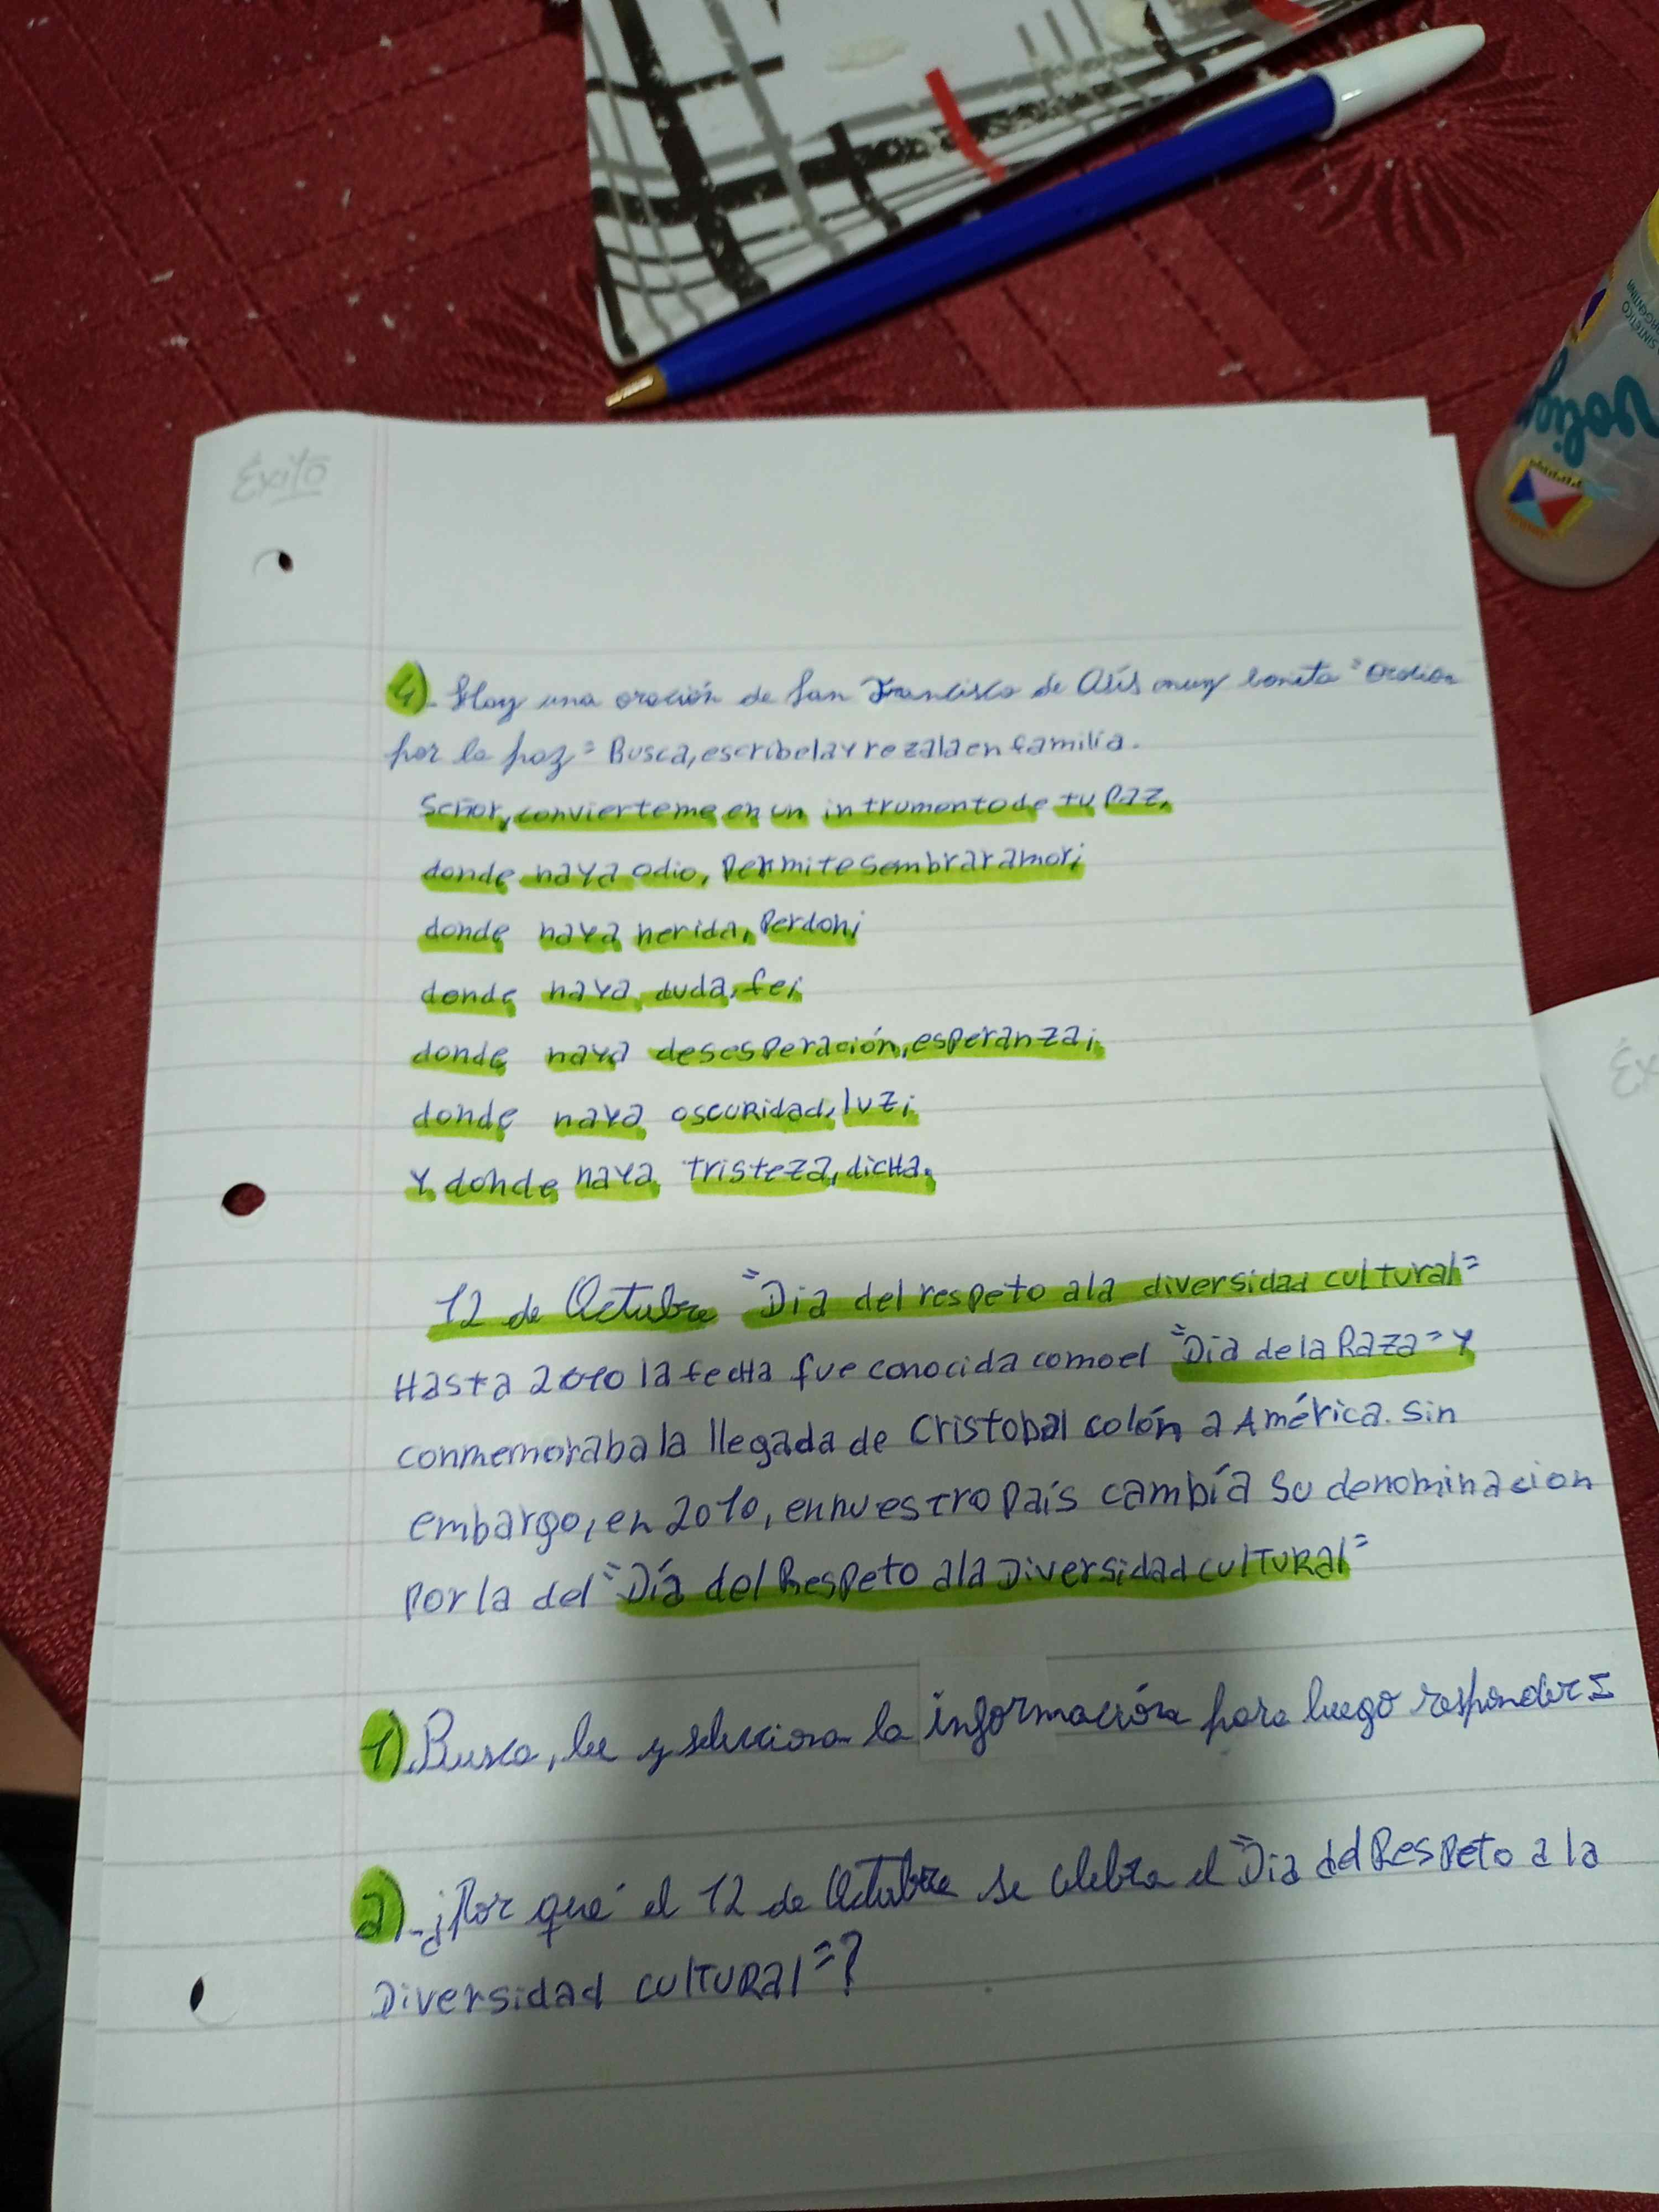 Éxito
4)- Hay una oración de San Francisco de Asís muy bonita "Oración
por la paz" Busca, escribela y rezala en familia.
Señor, convierteme en un intrumonto de tu Paz,
donde haya odio, Permite sembrar amor;
donde haya herida, Perdon;
donde haya duda, fe;
donde haya desesperación, esperanza;
donde haya oscuridad, luz;
Y donde haya tristeza, dicha.
12 de Octubre "Dia del respeto a la diversidad cultural"
Hasta 2010 la fecha fue conocida como el "Dia de la Raza" y
conmemoraba la llegada de Cristobal colón a América. Sin
embargo, en 2010, en nuestro País cambía su denominacion
Por la del "Día del Respeto a la Diversidad cultural"
1) Busca, lee y selecciona la información para luego responder:
2)- ¿Por qué el 12 de Octubre se celebra el "Dia del Respeto a la
Diversidad cultural"?
SINTÉTICO
ARGENTINA
voligo
Éx